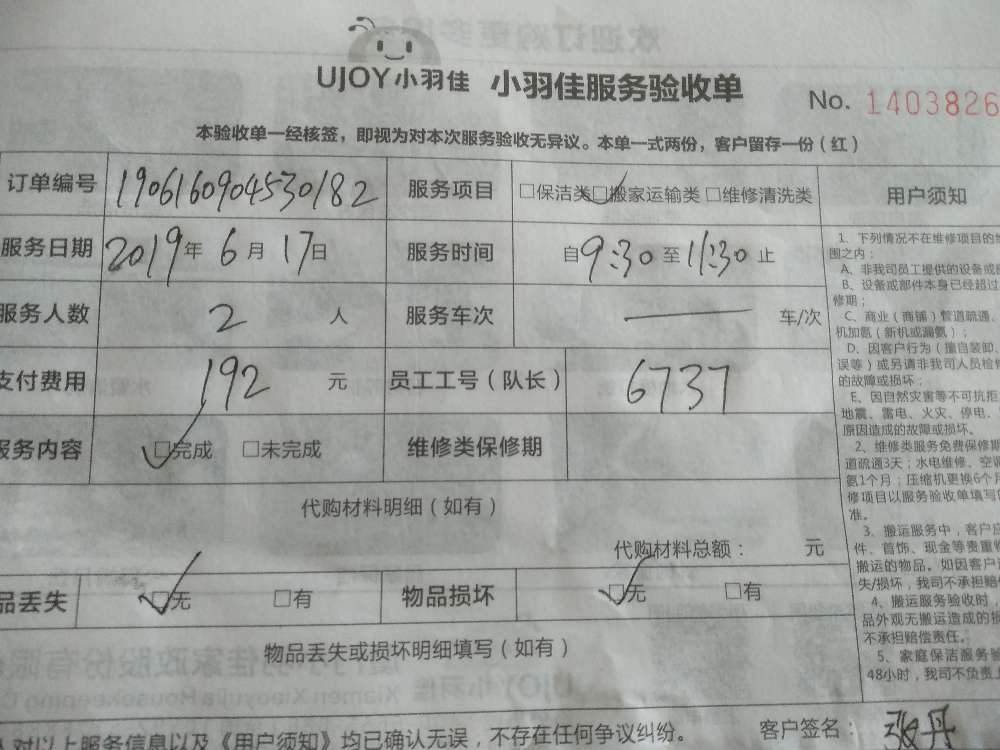 UJOY小羽佳 小羽佳服务验收单 No. 1403826
本验收单一经核签，即视为对本次服务验收无异议。本单一式两份，客户留存一份（红）
订单编号 190616090453​0182 服务项目 □保洁类 □搬家运输类 □维修清洗类 用户须知
服务日期 2019年 6月 17日 服务时间 自9:30至11:30止
服务人数 2 人 服务车次 — 车/次
支付费用 192 元 员工工号（队长） 6737
服务内容 □完成 □未完成 维修类保修期
代购材料明细（如有）
代购材料总额： 元
品丢失 □无 □有 物品损坏 □无 □有
物品丢失或损坏明细填写（如有）
对以上服务信息以及《用户须知》均已确认无误，不存在任何争议纠纷。 客户签名： 张丹
1、下列情况不在维修项目的
围之内：
A、非我司员工提供的设备或
B、设备或部件本身已经超过
修期；
C、商业（商铺）管道疏通、
机加氨（新机或漏氨）；
D、因客户行为（擅自装卸、
误等）或另请非我司人员检
的故障或损坏；
E、因自然灾害等不可抗拒
地震、雷电、火灾、停电、
原因造成的故障或损坏。
2、维修类服务免费保修期
道疏通3天；水电维修、空
氨1个月；压缩机更换6个月
修项目以服务验收单填写
准。
3、搬运服务中，客户应
件、首饰、现金等贵重
搬运的物品。如因客户
失/损坏，我司不承担赔
4、搬运服务验收时，
品外观无搬运造成的损
不承担赔偿责任。
5、家庭保洁服务
48小时，我司不负责